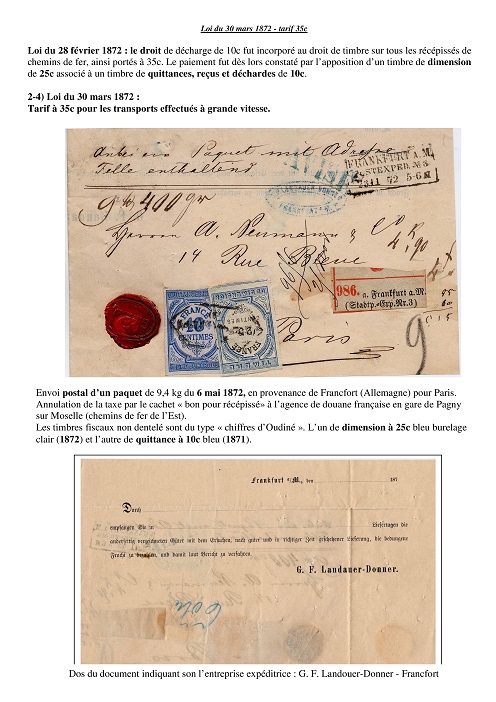 Loi du 30 mars 1872 - tarif 35c
Loi du 28 février 1872 : le droit de décharge de 10c fut incorporé au droit de timbre sur tous les récépissés de
chemins de fer, ainsi portés à 35c. Le paiement fut dès lors constaté par l'apposition d'un timbre de dimension
de 25c associé à un timbre de quittances, reçus et déchardes de 10c.
2-4) Loi du 30 mars 1872 :
Tarif à 35c pour les transports effectués à grande vitesse.
Anbei ein Paquet mit Adresse
enthaltend
FRANKFURT A.M.
72 5-6 N
400 gr
Herrn A. Neumann & Co
4,90
14 Rue Bleue
FRANCE
10
CENTIMES
986. a. Frankfurt a. M.
(Stadtp.-Exp. Nr. 3)
Paris
9
Envoi postal d'un paquet de 9,4 kg du 6 mai 1872, en provenance de Francfort (Allemagne) pour Paris.
Annulation de la taxe par le cachet « bon pour récépissé» à l'agence de douane française en gare de Pagny
sur Moselle (chemins de fer de l'Est).
Les timbres fiscaux non dentelé sont du type « chiffres d'Oudiné ». L'un de dimension à 25c bleu burelage
clair (1872) et l'autre de quittance à 10c bleu (1871).
Frankfurt a/M., den 187
Durch
empfangen Sie in Liefertagen die
anderseitig verzeichneten Güter mit dem Ersuchen, nach guter und in richtiger Zeit geschehener Lieferung, die bedungene
Fracht zu bezahlen, und damit laut Bericht zu verfahren.
G. F. Landauer-Donner.
Dos du document indiquant son l'entreprise expéditrice : G. F. Landouer-Donner - Francfort